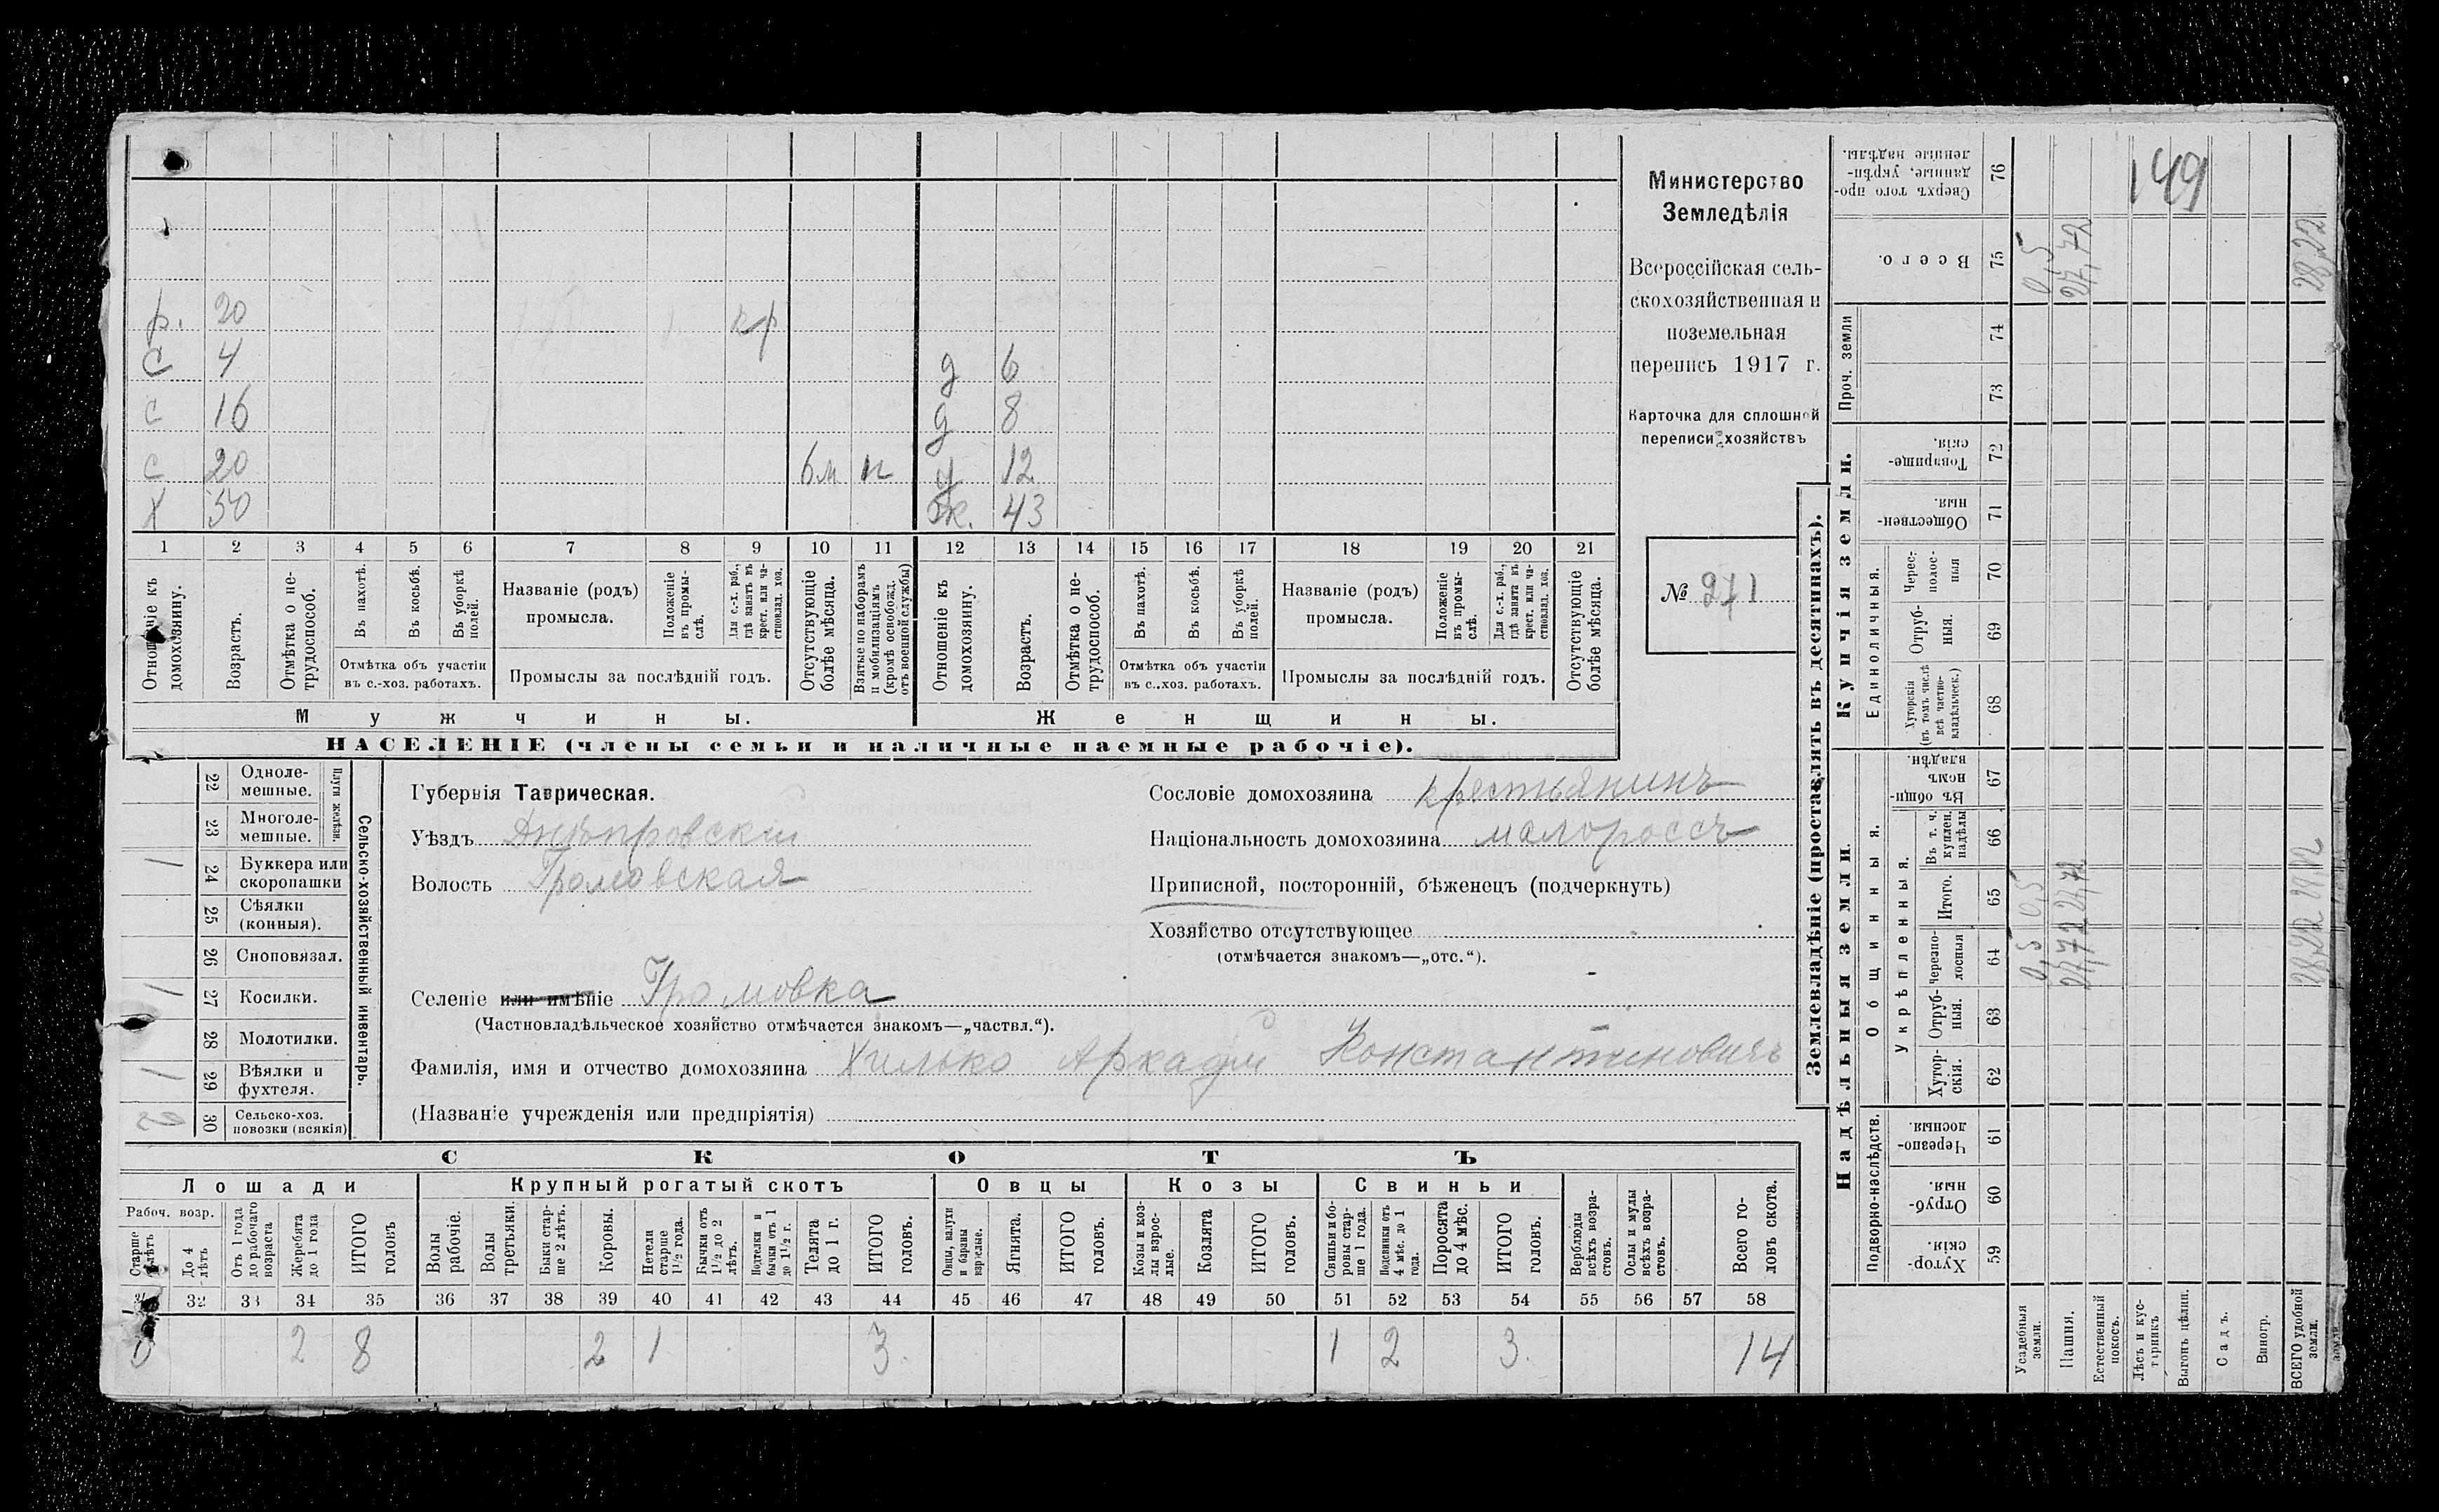 р. 20 кр
с 4 д 6
с 16 д 8
с 20 6м н д 12
х 50 ж. 43
1 2 3 4 5 6 7 8 9 10 11 12 13 14 15 16 17 18 19 20 21
Отношеніе къ домохозяину.
Возрастъ.
Отмѣтка о не-
трудоспособ.
Въ пахотѣ.
Въ косьбѣ.
Въ уборкѣ
полей.
Отмѣтка объ участіи
въ с.-хоз. работахъ.
Названіе (родъ)
промысла.
Положеніе
въ промы-
слѣ.
Для с.-х. раб.,
гдѣ занятъ въ
крест. или ча-
стновлад. хоз.
Промыслы за послѣдній годъ.
Отсутствующіе
болѣе мѣсяца.
Взятые по наборамъ
и мобилизаціямъ
(кромѣ освобожд.
отъ военной службы)
Отношеніе къ
домохозяину.
Возрастъ.
Отмѣтка о не-
трудоспособ.
Въ пахотѣ.
Въ косьбѣ.
Въ уборкѣ
полей.
Отмѣтка объ участіи
въ с.-хоз. работахъ.
Названіе (родъ)
промысла.
Положеніе
въ промы-
слѣ.
Для с.-х. раб.,
гдѣ занята въ
крест. или ча-
стновлад. хоз.
Промыслы за послѣдній годъ.
Отсутствующіе
болѣе мѣсяца.
Мужчины. Женщины.
НАСЕЛЕНІЕ (члены семьи и наличные наемные рабочіе).
Министерство
Земледѣлія
Всероссійская сель-
скохозяйственная и
поземельная
перепись 1917 г.
Карточка для сплошной
переписи хозяйствъ
№ 271
22 Одноле-
мешные.
23 Многоле-
мешные.
Плуги желѣзн.
1 24 Буккера или
скоропашки
25 Сѣялки
(конныя).
26 Сноповязал.
1 27 Косилки.
28 Молотилки.
1 29 Вѣялки и
фухтеля.
2 30 Сельско-хоз.
повозки (всякія)
Сельско-хозяйственный инвентарь.
Губернія Таврическая.
Уѣздъ Днѣпровскій
Волость Громовская
Селеніе или имѣніе Громовка
(Частновладѣльческое хозяйство отмѣчается знакомъ—„частвл.“).
Фамилія, имя и отчество домохозяина Хилько Аркадій Константиновичъ
(Названіе учрежденія или предпріятія)
Сословіе домохозяина крестьянинъ
Національность домохозяина малороссъ
Приписной, посторонній, бѣженецъ (подчеркнуть)
Хозяйство отсутствующее
(отмѣчается знакомъ—„отс.“).
СКОТЪ
Лошади Крупный рогатый скотъ Овцы Козы Свиньи
Рабоч. возр.
Старше
лѣтъ
До 4
лѣтъ
Отъ 1 года
до рабочаго
возраста
Жеребята
до 1 года
ИТОГО
головъ
Волы
рабочіе.
Волы
третьяки.
Быки стар-
ше 2 лѣтъ.
Коровы.
Нетели
старше
1½ года.
Бычки отъ
1½ до 2
лѣтъ.
Подтелки и
бычки отъ 1
до 1½ г.
Телята
до 1 г.
ИТОГО
головъ.
Овцы, валухи
и бараны
взрослые.
Ягнята.
ИТОГО
головъ.
Козы и коз-
лы взрос-
лые.
Козлята
ИТОГО
головъ.
Свиньи и бо-
ровы стар-
ше 1 года.
Подсвинки отъ
4 мѣс. до 1
года.
Поросята
до 4 мѣс.
ИТОГО
головъ.
Верблюды
всѣхъ возра-
стовъ.
Ослы и мулы
всѣхъ возра-
стовъ.
Всего го-
ловъ скота.
31 32 33 34 35 36 37 38 39 40 41 42 43 44 45 46 47 48 49 50 51 52 53 54 55 56 57 58
2 8 2 1 3 1 2 3 14
Землевладѣніе (проставлять въ десятинахъ).
Надѣльныя земли. Купчія земли. Проч. земли
Подворно-наслѣдств.
Общинныя.
Укрѣпленныя.
Единоличныя.
Сверхъ того про-
данные, укрѣп-
ленные надѣлы.
76
149
Всего.
75
0,5
27,72
28,22
74
73
Товарище-
скія.
72
Обществен-
ныя.
71
Черес-
полос-
ныя
70
Отруб-
ныя.
69
Хуторскія
(въ томъ числѣ
всѣ частно-
владѣльческ.)
68
Въ общи-
номъ
владѣн.
67
Въ т. ч.
куплен.
надѣлы
66
Итого.
65
0,5
27,72
Черезпо-
лосныя
64
0,5
27,72
28,22
Отруб-
ныя.
63
Хутор-
скія.
62
Черезпо-
лосныя.
61
Отруб-
ныя.
60
Хутор-
скія.
59
Усадебныя
земли.
Пашня.
Естественный
покосъ.
Лѣсъ и кус-
тарникъ
Выгонъ цѣлин.
Садъ.
Виногр.
ВСЕГО удобной
земли.